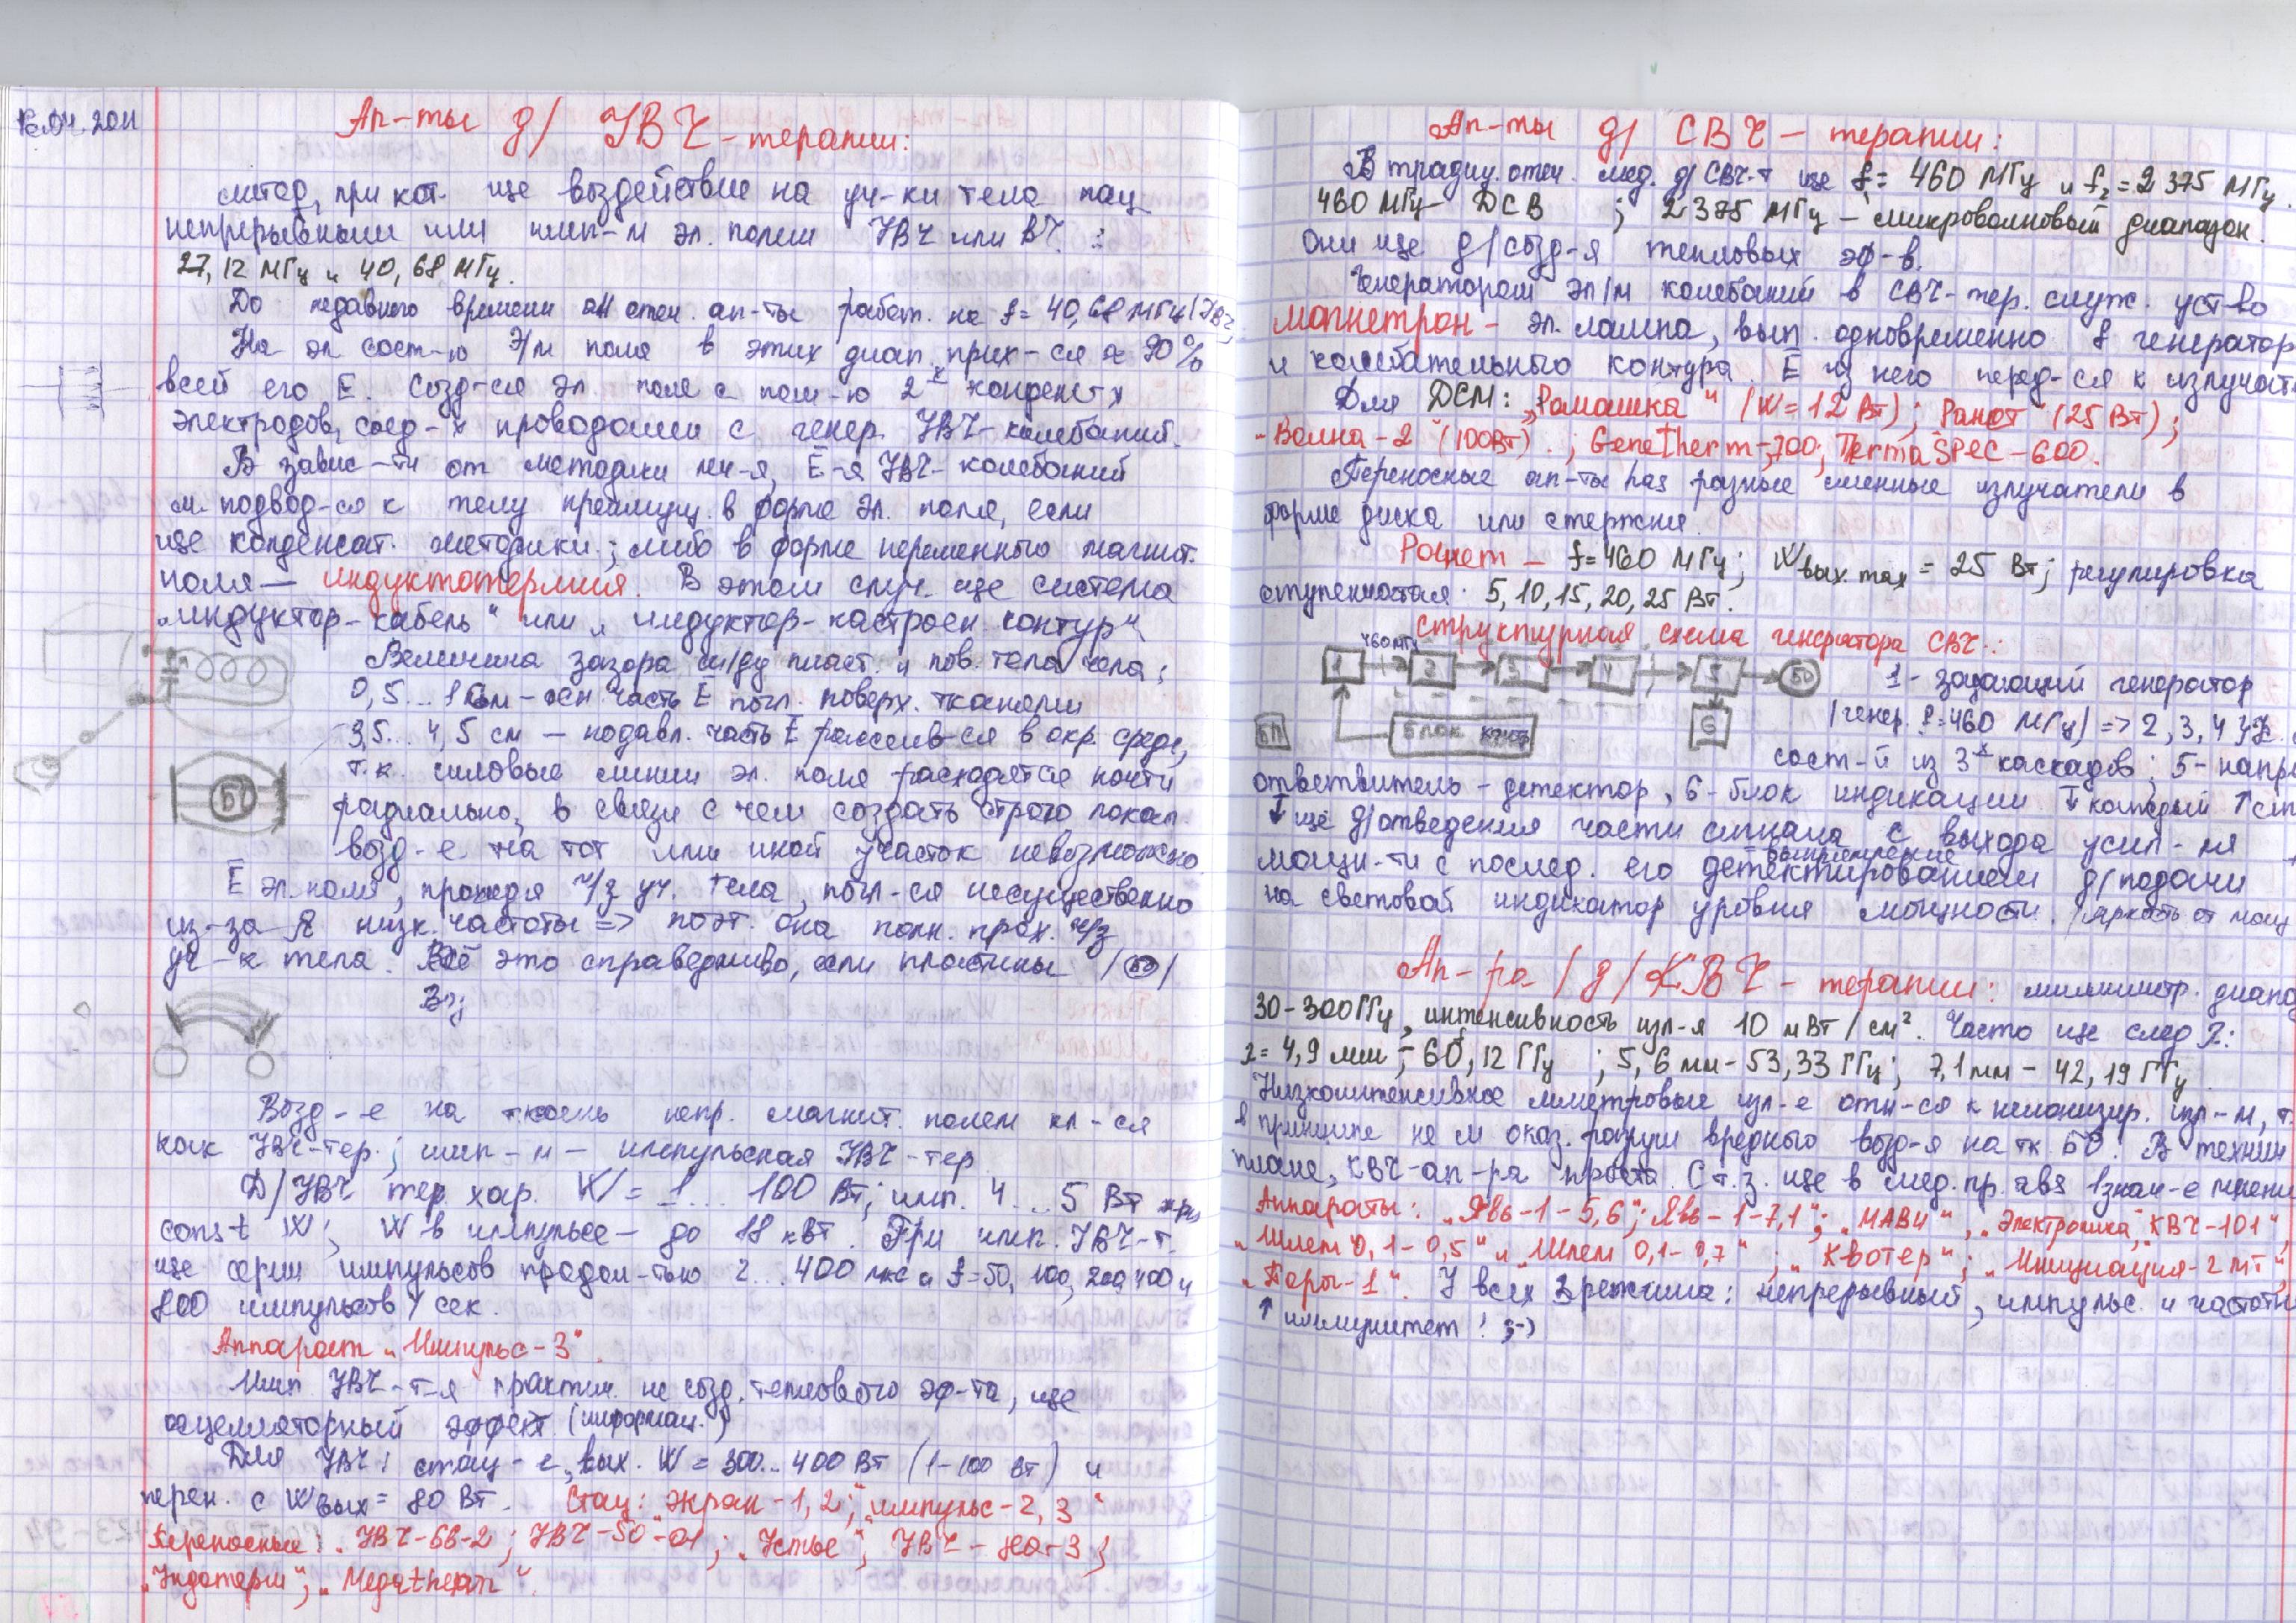 12.04.2011
Ап-ты д/ УВЧ-терапии:
метод, при кот. ще воздействие на уч-ки тела пац
непрерывным или имп-м эл. полем УВЧ или ВЧ :
27,12 МГц и 40,68 МГц.
До недавного времени отеч. ап-ты работ. на f= 40,68 МГц (УВЧ)
На эл сост-ю Э/м поля в этих диап. прих-ся ≈ 90%
всей его Е. Созд-ся эл. поле с пом-ю 2х конденс-х
электродов, соед-х проводами с генер. УВЧ-колебаний.
В завис-ти от методики леч-я, Е-я УВЧ-колебаний
м. подвод-ся к телу преимущ. в форме эл. поля, если
ще конденсат. методики; либо в форме переменного магнит.
поля — индуктотермия. В этом случ. ще система
"индуктор-кабель" или "индуктор-настроен. контур"
Величина зазора м/ду пласт. и пов. тела чела:
0,5...1 см – осн. часть Е погл. поверх. тканями
3,5...4,5 см – подавл. часть Е рассеив-ся в окр. среде,
т.к. силовые линии эл. поля расходятся почти
радиально, в связи с чем создать строго локал.
БО
возд-е на тот или иной участок невозможно.
Е эл. поля, проходя ч/з уч. тела, погл-ся несущественно
из-за низк. частоты => поэт. она полн. прох. ч/з
уч-к тела. Всё это справедливо, если пластины |БО|
Вз;
Возд-е на ткань непр. магнит. полем кл-ся
как УВЧ-тер.; имп-м – импульсная УВЧ-тер
Д/УВЧ тер. хар. W = 1...100 Вт; имп. 4...5 Вт при
const W; W в импульсе – до 18 кВт. При имп. УВЧ-т.
ще серии импульсов продол-тью 2...400 мкс и f=50, 100, 200, 400 и
800 импульсов / сек.
Аппарат "Импульс-3".
Имп. УВЧ-т-я практич. не созд. теплового эф-та, ще
осцилляторный эффект (информац.)
Для УВЧ: стац-е, вых. W = 300...400 Вт (1-100 Вт) и
перен. с Wвых = 80 Вт. Стац: экран-1,2; "импульс-2,3"
Переносные: УВЧ-66-2; УВЧ-50-01; "Устье"; УВЧ-80-3;
"Ундатерм"; "Megatherm".
Ап-ты д/ СВЧ – терапии:
В традиц. отеч. мед. д/ СВЧ-т ще f= 460 МГц и f2= 2375 МГц.
460 МГц – ДСВ ; 2375 МГц – микроволновый диапазон.
Они ще д/созд-я тепловых эф-в.
Генератором эл/м колебаний в СВЧ-тер. служ. уст-во
магнетрон – эл. лампа, вып. одновременно f генератор
и колебательного контура. Е из него перед-ся к излучат
Для ДСМ: "Ромашка" (W=12 Вт); "Ранет" (25 Вт);
"Волна-2" (100Вт).; Genetherm-700; TermaSPEC-600.
Переносные ап-ты has разные сменные излучатели в
форме диска или стержня
Ранет – f=460 МГц; Wвых max = 25 Вт; регулировка
ступенчатая: 5, 10, 15, 20, 25 Вт.
структурная схема генератора СВЧ.:
460 МГц
1 2 3 4 5 БО
1- задающий генератор
6
БП
Блок
(генер. f=460 МГц) => 2, 3, 4 УЖ
сост-й из 3х каскадов; 5- напр
ответвитель – детектор, 6-блок индикации ↓ который ↑
↓ ще д/отведения части сигнала с выхода усил-ля
выпрямление
мощн-ти с послед. его детектированием д/подачи
на световой индикатор уровня мощности. (яркость от мощ
Ап-ра /д/ КВЧ – терапии: миллиметр. диапа
30-300 ГГц, интенсивность изл-я 10 мВт/см². Часто ще след λ:
λ= 4,9 мм – 60,12 ГГц ; 5,6 мм – 53,33 ГГц; 7,1 мм – 42,19 ГГц.
Низкоинтенсивное мметровые изл-е отн-ся к неионизир. изл-м, т.
в принципе не м оказ. разруш вредного возд-я на тк БО. В технич
плане, КВЧ-ап-ра проста. С т.з. ще в мед. пр.
Аппараты: "Явь-1-5,6"; "Явь-1-7,1"; "МАВИ", "Электроника, КВЧ-101",
"Шлем 0,1-0,5" и "Шлем 0,1-0,7" ; "Квотер"; "Инициация-2 мт",
"Поры-1". У всех 3 режима: непрерывный, импульс. и частотн
↑ иммунитет! ;-)